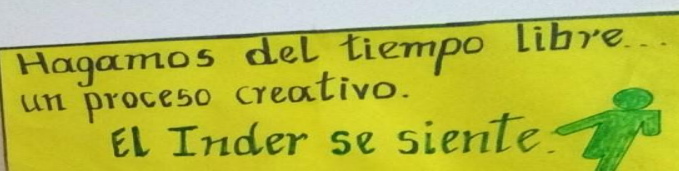 Hagamos del tiempo libre...
un proceso creativo.
El Inder se siente.